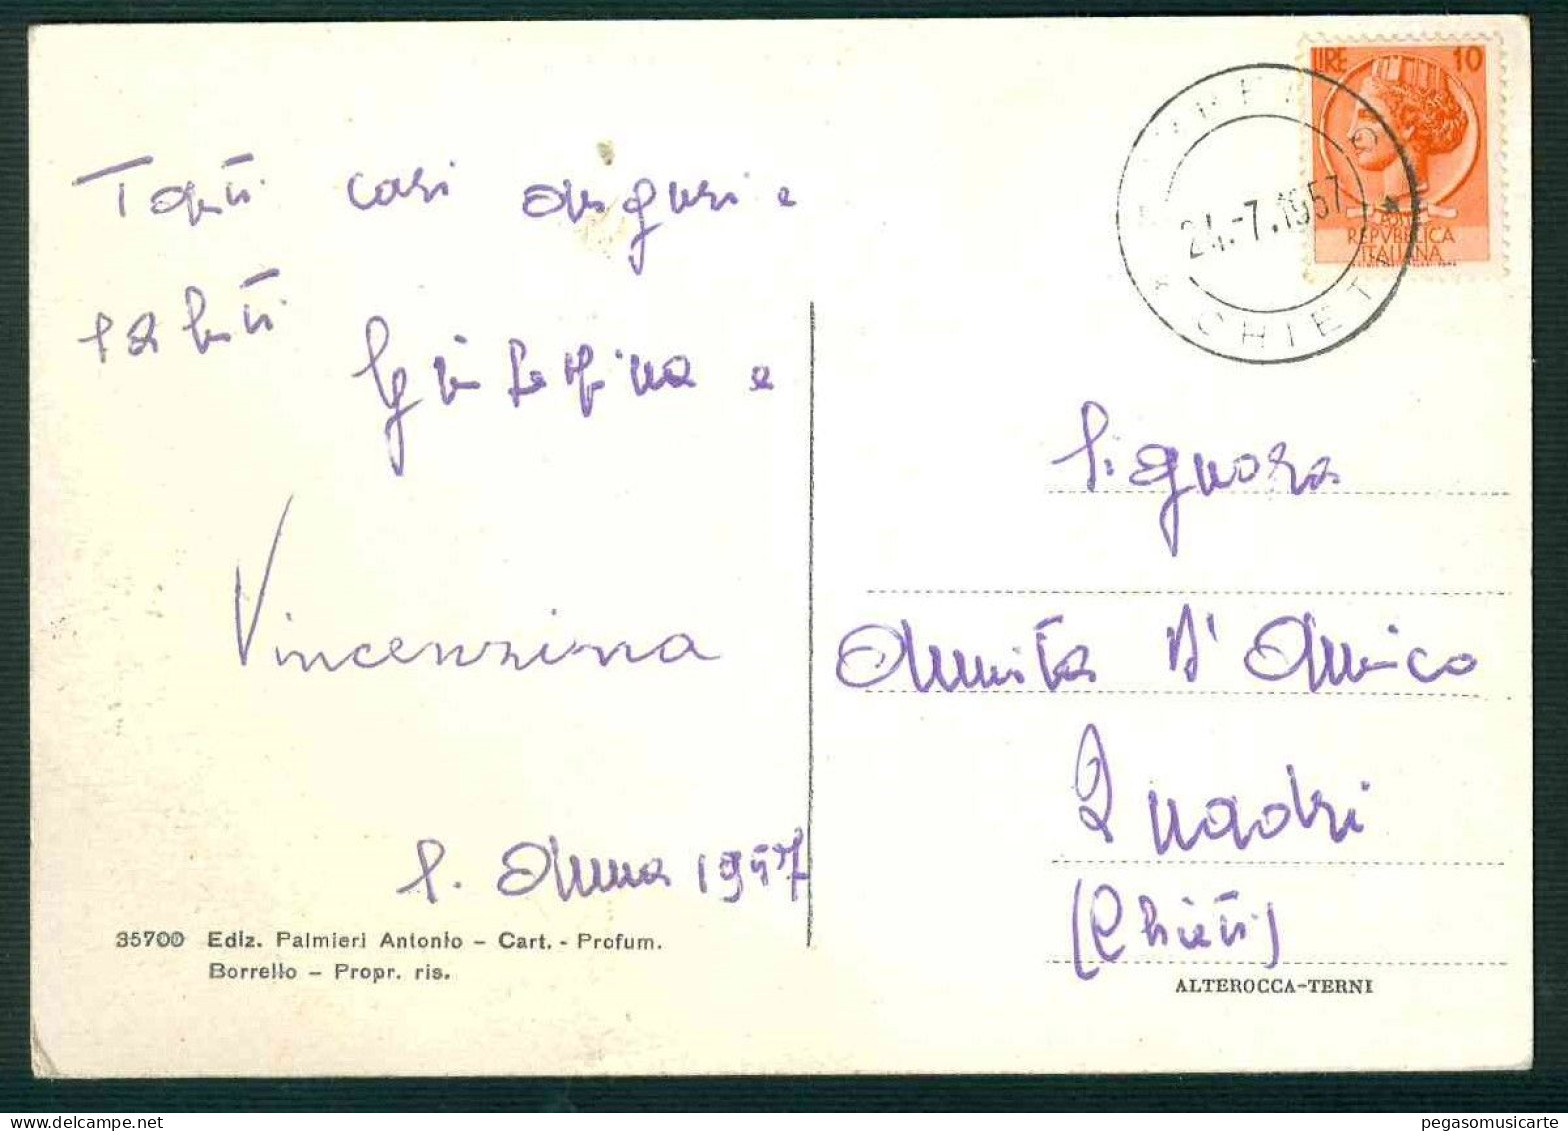 Tanti cari auguri e
saluti
Giuseppina e
Vincenzina
S. Anna 1957
35700 Ediz. Palmieri Antonio – Cart. - Profum.
Borrello – Propr. ris.
LIRE 10
REPVBBLICA
ITALIANA
24.-7.1957
CHIETI
Signora
Annita D'Amico
Quadri
(Chieti)
ALTEROCCA-TERNI
pegasomusicarte